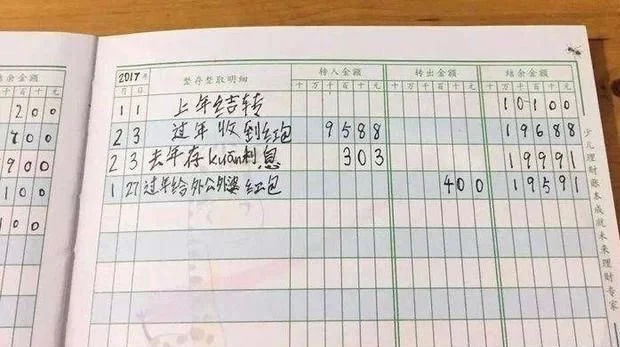 结余金额
百十元
200
700
900
100
100
2017年 整存整取明细 转入金额 转出金额 结余金额
月日 十万千百十元 十万千百十元 十万千百十元
1 1 上年结转 10100
2 3 过年收到红包 9588 19688
2 3 去年存kuǎn利息 303 19991
1 27 过年给外公外婆红包 400 19591
少儿理财账本成就未来理财专家